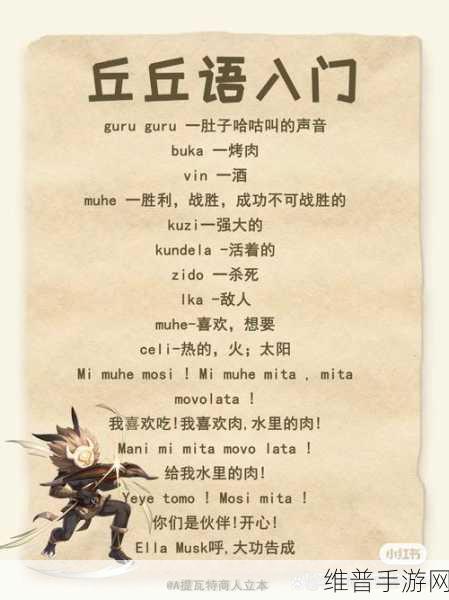 丘丘语入门
guru guru 一肚子哈咕叫的声音
buka 一烤肉
vin 一酒
muhe 一胜利，战胜，成功不可战胜的
kuzi一强大的
kundela -活着的
zido 一杀死
lka -敌人
muhe-喜欢，想要
celi-热的，火；太阳
Mi muhe mosi ! Mi muhe mita , mita
movolata !
我喜欢吃!我喜欢肉,水里的肉!
Mani mi mita movo lata !
给我水里的肉!
Yeye tomo ! Mosi mita !
你们是伙伴!开心!
Ella Musk呼,大功告成
小红书
@A提瓦特商人立本
维普手游网